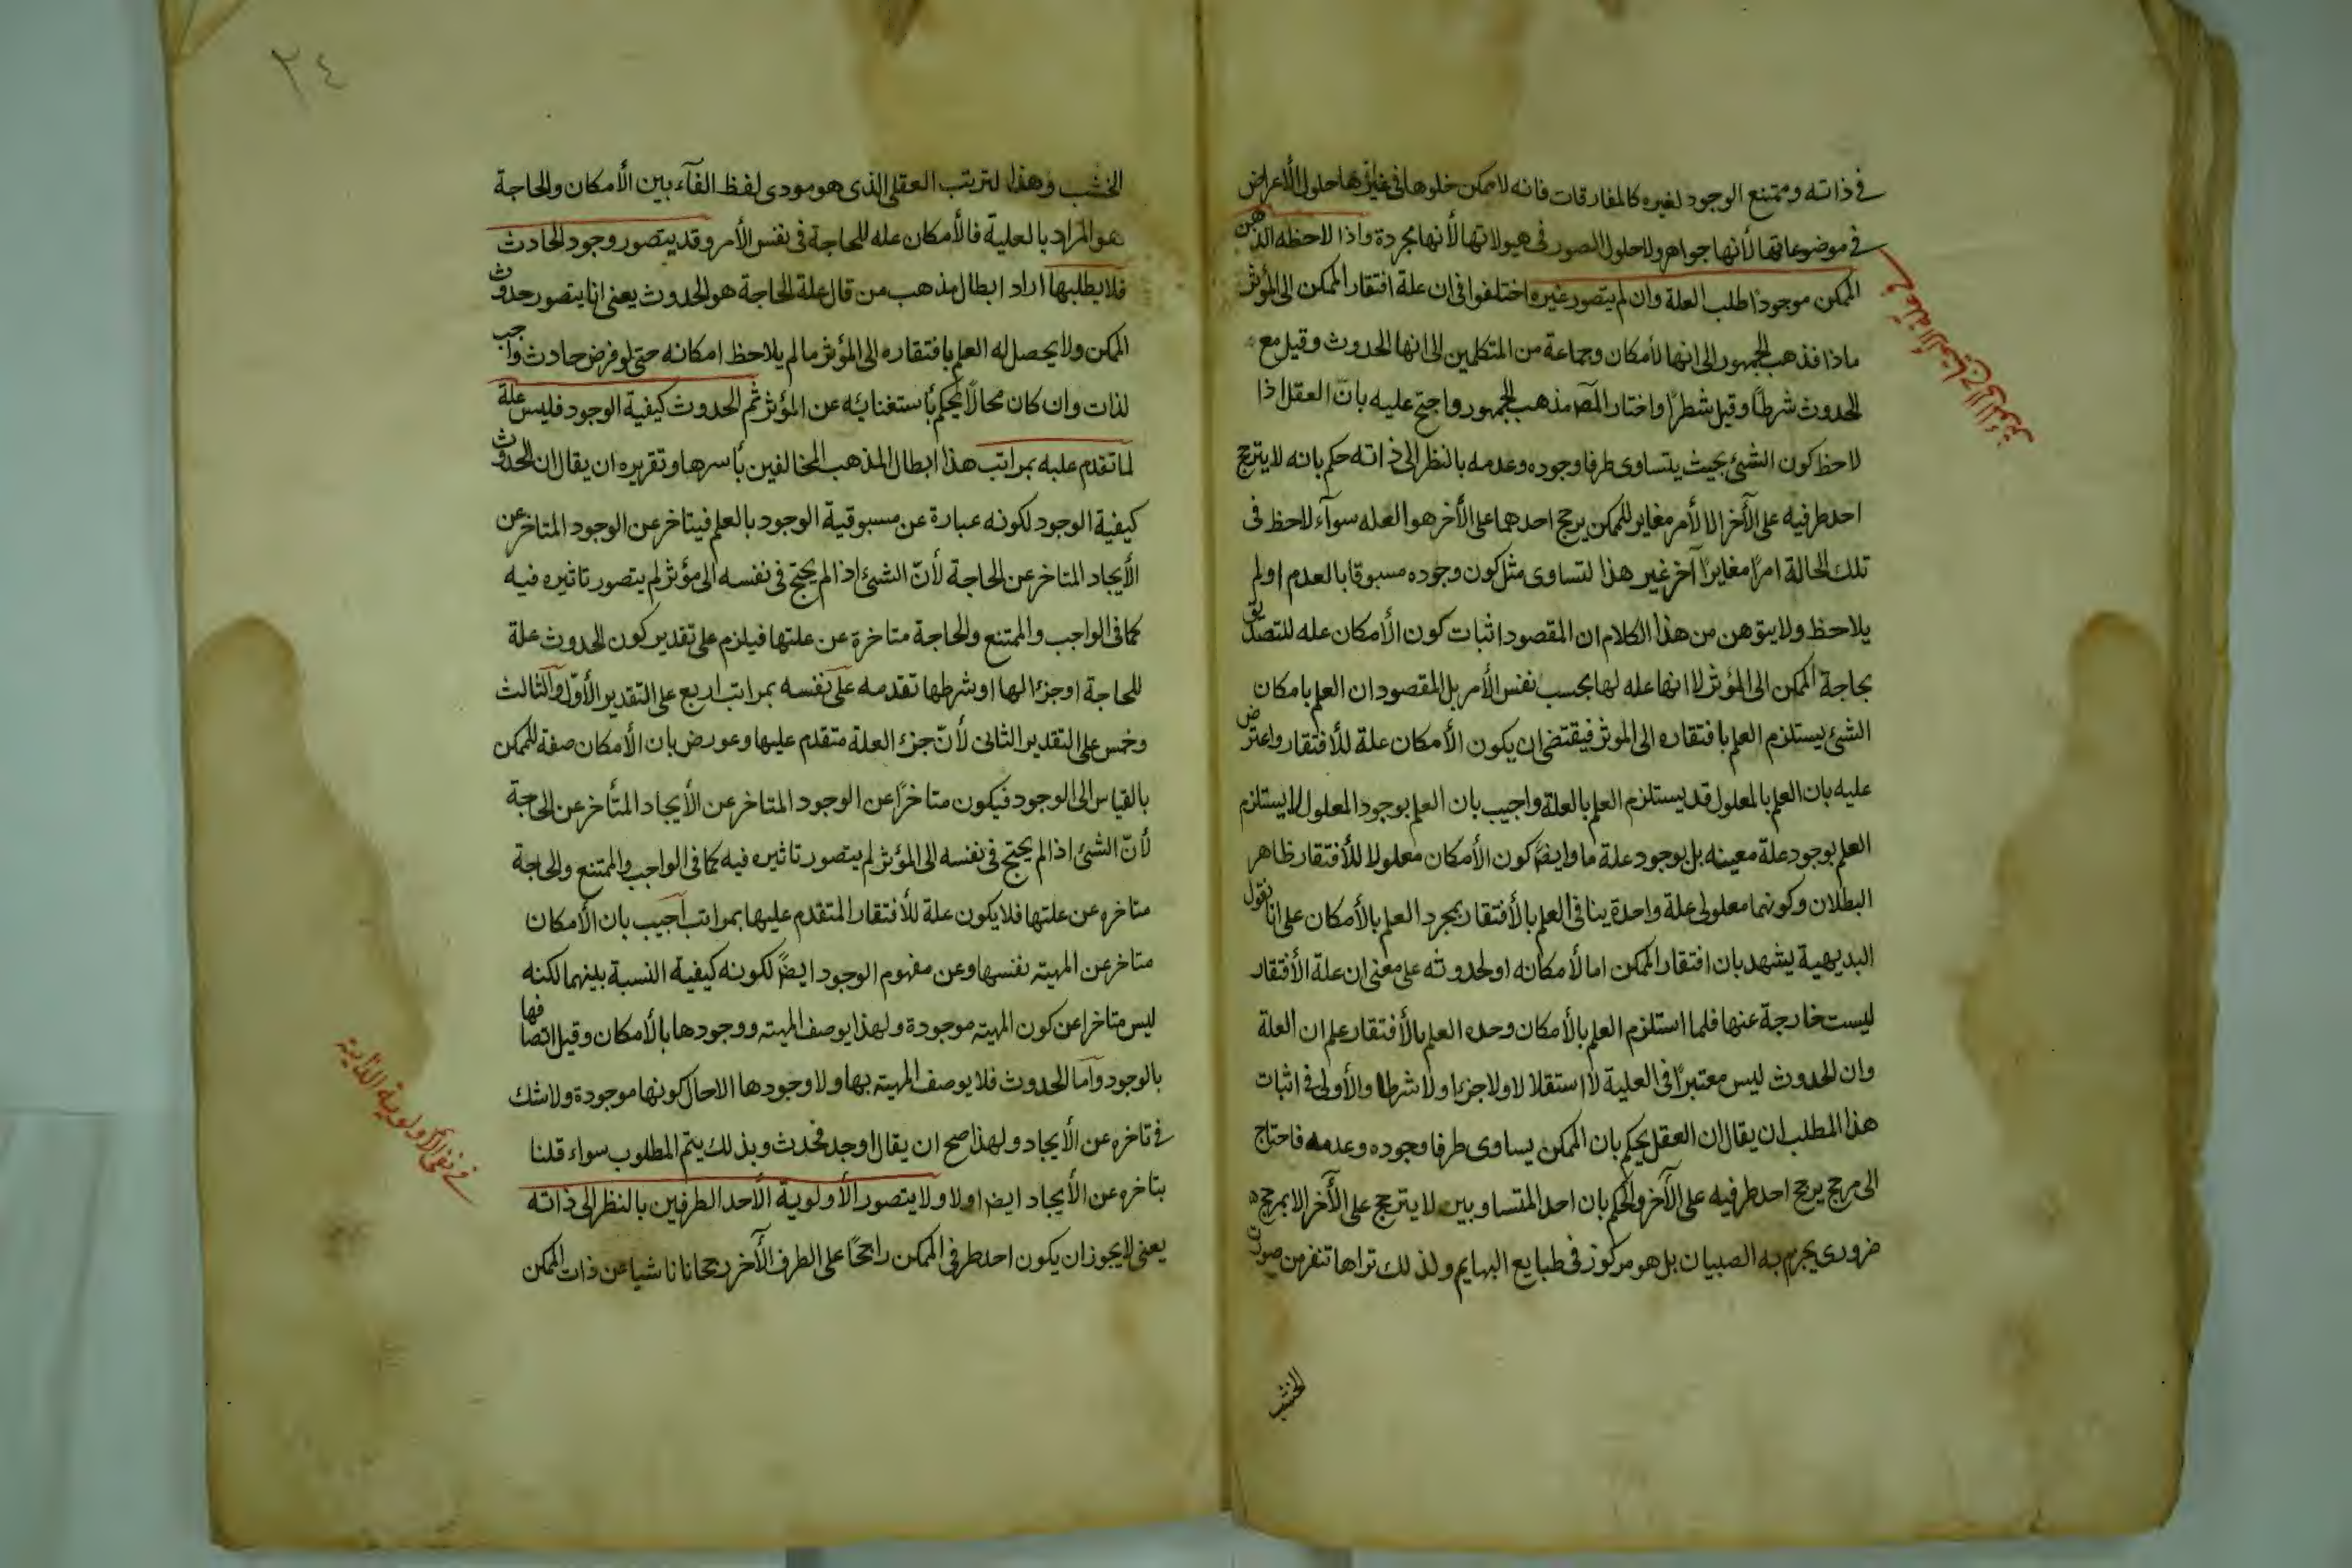 في ذاته وممتنع الوجود لغيره كالمفارقات فانه لا يمكن خلوها في غيرها حلول الأعراض
في موضوعاتها لأنها جواهر ولا حلول الصور في هيولاتها لأنها مجردة واذا لاحظه الذهن
الممكن موجودًا طلب العلة وان لم يتصور غيره اختلفوا في ان علة افتقار الممكن الى المؤثر
ماذا فذهب الجمهور الى انها الأمكان وجماعة من المتكلمين الى انها الحدوث وقيل مع
الحدوث شرطًا وقيل شطرًا واختار المص مذهب الجمهور واحتج عليه بانّ العقل اذا
لاحظ كون الشئ بحيث يتساوى طرفا وجوده وعدمه بالنظر الى ذاته حكم بانه لا يترجح
احد طرفيه على الآخر الا لأمر مغاير للممكن يرجح احدهما على الأخر هو العله سوآء لاحظ فى
تلك الحالة امرًا مغايرًا آخر غير هذا لتساوى مثل كون وجوده مسبوقا بالعدم او لم
يلاحظ ولا يتوهن من هذا الكلام ان المقصود اثبات كون الأمكان عله للتصديق
بحاجة الممكن الى المؤثر لا انها عله لها بحسب نفس الأمر بل المقصود ان العلم بامكان
الشئ يستلزم العلم بافتقاره الى الموثر فيقتضى ان يكون الأمكان علة للأفتقار واعترض
عليه بان العلم بالمعلول قد يستلزم العلم بالعلة واجيب بان العلم بوجود المعلول لا يستلزم
العلم بوجود علة معينه بل بوجود علة ما وايضًا كون الأمكان معلولا للأفتقار ظاهر
البطلان وكونهما معلولى علة واحدة ينافى العلم بالأفتقار بمجرد العلم بالأمكان على انا نقول
البديهية يشهد بان افتقار الممكن اما لأمكانه او لحدوثه على معنى ان علة الأفتقار
ليست خارجة عنها فلما استلزم العلم بالأمكان وحده العلم بالأفتقار علم ان العلة
وان الحدوث ليس معتبرًا فى العلية لا استقلالا ولا جزءا ولا شرطا والأولى فى اثبات
هذا المطلب ان يقال ان العقل يحكم بان الممكن يساوى طرفا وجوده وعدمه فاحتاج
الى مرجح يرجح احد طرفيه على الآخر والحكم بان احد المتساويين لا يترجح على الآخر الا بمرجح
ضرورى يجزم به الصبيان بل هو مركوز فى طبايع البهايم ولذلك تراها تنفر من صوت
الخشب
٢٤
الخشب وهذا لتريتب العقلى الذى هو مودى لفظ الفآء بين الأمكان والحاجة
هو المراد بالعلية فالأمكان عله للحاجة فى نفس الأمر وقد يتصور وجود الحادث
فلا يطلبها اراد ابطال مذهب من قال علة الحاجة هو الحدوث يعنى انا يتصور حدوث
الممكن ولا يحصل له العلم بافتقاره الى المؤثر ما لم يلاحظ امكانه حتى لو فرض حادث واجب
لذات وان كان محالًا يحكم بأستغنائه عن المؤثر ثم الحدوث كيفية الوجود فليس علة
لما تقدم عليه بمراتب هذا ابطال المذهب المخالفين بأسرها وتقريره ان يقال ان الحدوث
كيفية الوجود لكونه عبارة عن مسبوقية الوجود بالعلم فيتاخر عن الوجود المتاخر عن
الأيجاد المتاخر عن الحاجة لأنّ الشئ اذا لم يحتج فى نفسه الى مؤثر لم يتصور تاثيره فيه
كما فى الواجب والممتنع والحاجة متاخرة عن علتها فيلزم على تقدير كون الحدوث علة
للحاجة او جزءا لها او شرطها تقدمه على نفسه بمراتب اربع على التقدير الأول والثالث
وخمس على التقدير الثانى لأنّ جزء العلة متقدم عليها وعورض بان الأمكان صفة للممكن
بالقياس الى الوجود فيكون متاخرًا عن الوجود المتاخر عن الأيجاد المتأخر عن الحاجة
لأنّ الشئ اذا لم يحتج فى نفسه الى المؤثر لم يتصور تاثيره فيه كما فى الواجب والممتنع والحاجة
متاخره عن علتها فلا يكون علة للأفتقار المتقدم عليها بمراتب اجيب بان الأمكان
متاخر عن المهية نفسها وعن مفهوم الوجود ايضًا لكونه كيفية النسبة بينهما لكنه
ليس متاخرا عن كون المهيته موجودة ولهذا يوصف المهيته ووجودها بالأمكان وقيل اتصافها
بالوجود وآما الحدوث فلا يوصف المهيته بها ولا وجودها الا حال كونها موجودة ولا شك
فى تاخره عن الأيجاد ولهذا صح ان يقال اوجد فحدث وبذلك يتم المطلوب سواء قلنا
بتاخره عن الأيجاد ايضا او لا ولا يتصور الأولوية الأحد الطرفين بالنظر الى ذاته
يعنى لا يجوز ان يكون احد طرفى الممكن راجحًا على الطرف الآخر رجحانا ناشيا عن ذات الممكن
فى نفى الأولوية الذاتية